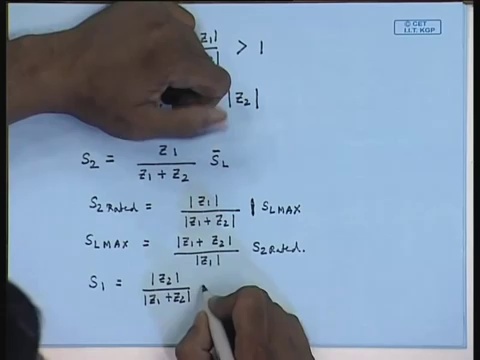 © CET
I.I.T. KGP
|z1| > 1
|z2|
S2 = z1 / (z1 + z2) S̄L
S2 Rated = |z1| / |z1 + z2| | SLMAX
SLMAX = |z1 + z2| / |z1| S2 Rated.
S1 = |z2| / |z1 + z2|